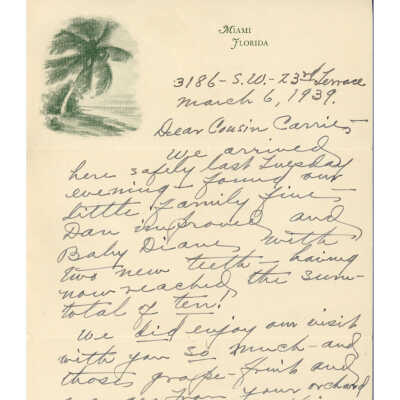 MIAMI
FLORIDA
3186-S.W.-23rd Terrace
March 6, 1939.
Dear Cousin Carrie,
We arrived
here safely last Tuesday
evening - found our
little family fine,
Dan improved and
Baby Diane, with
two new teeth - having
now reached the sum-
total of ten!
We did enjoy our visit
with you so much - and
those grape-fruit and
from your orchard